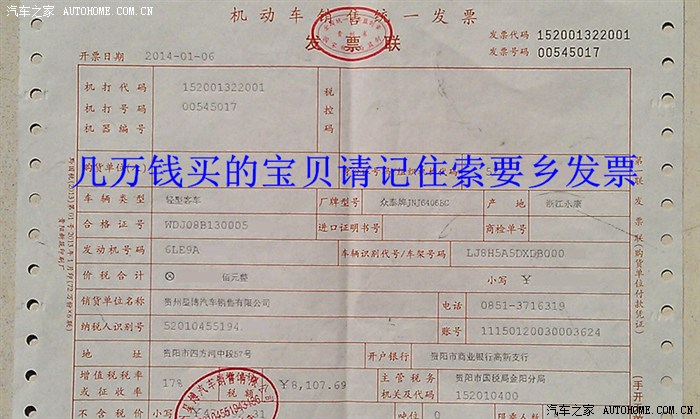 汽车之家
机动车销售统一发票
汽车之家
发票联
发票代码 152001322001
发票号码 00545017
开票日期 2014-01-06
机打代码 152001322001 税控码
机打号码 00545017
机器编号
几万钱买的宝贝请记住索要乡发票
车辆类型 轻型客车 厂牌型号 众泰牌JNJ6406BC 产地 浙江永康
合格证号 WDJ08B130005 进口证明书号 商检单号
发动机号码 6LE9A 车辆识别代号/车架号码 LJ8H5A5DXDB000
价税合计 ⊗ 佰元整 小写 ¥
销货单位名称 汽车销售有限公司 电话 0851-3716319
纳税人识别号 52010455194 账号 11150120030003624
地址 贵阳市四方河中段57号 开户银行 贵阳市商业银行高新支行
增值税税率或征收率 17% 税额 ¥8,107.69 主管税务机关及代码 贵阳市国税局金阳分局 152010400
不含税价 吨位 0
汽车之家